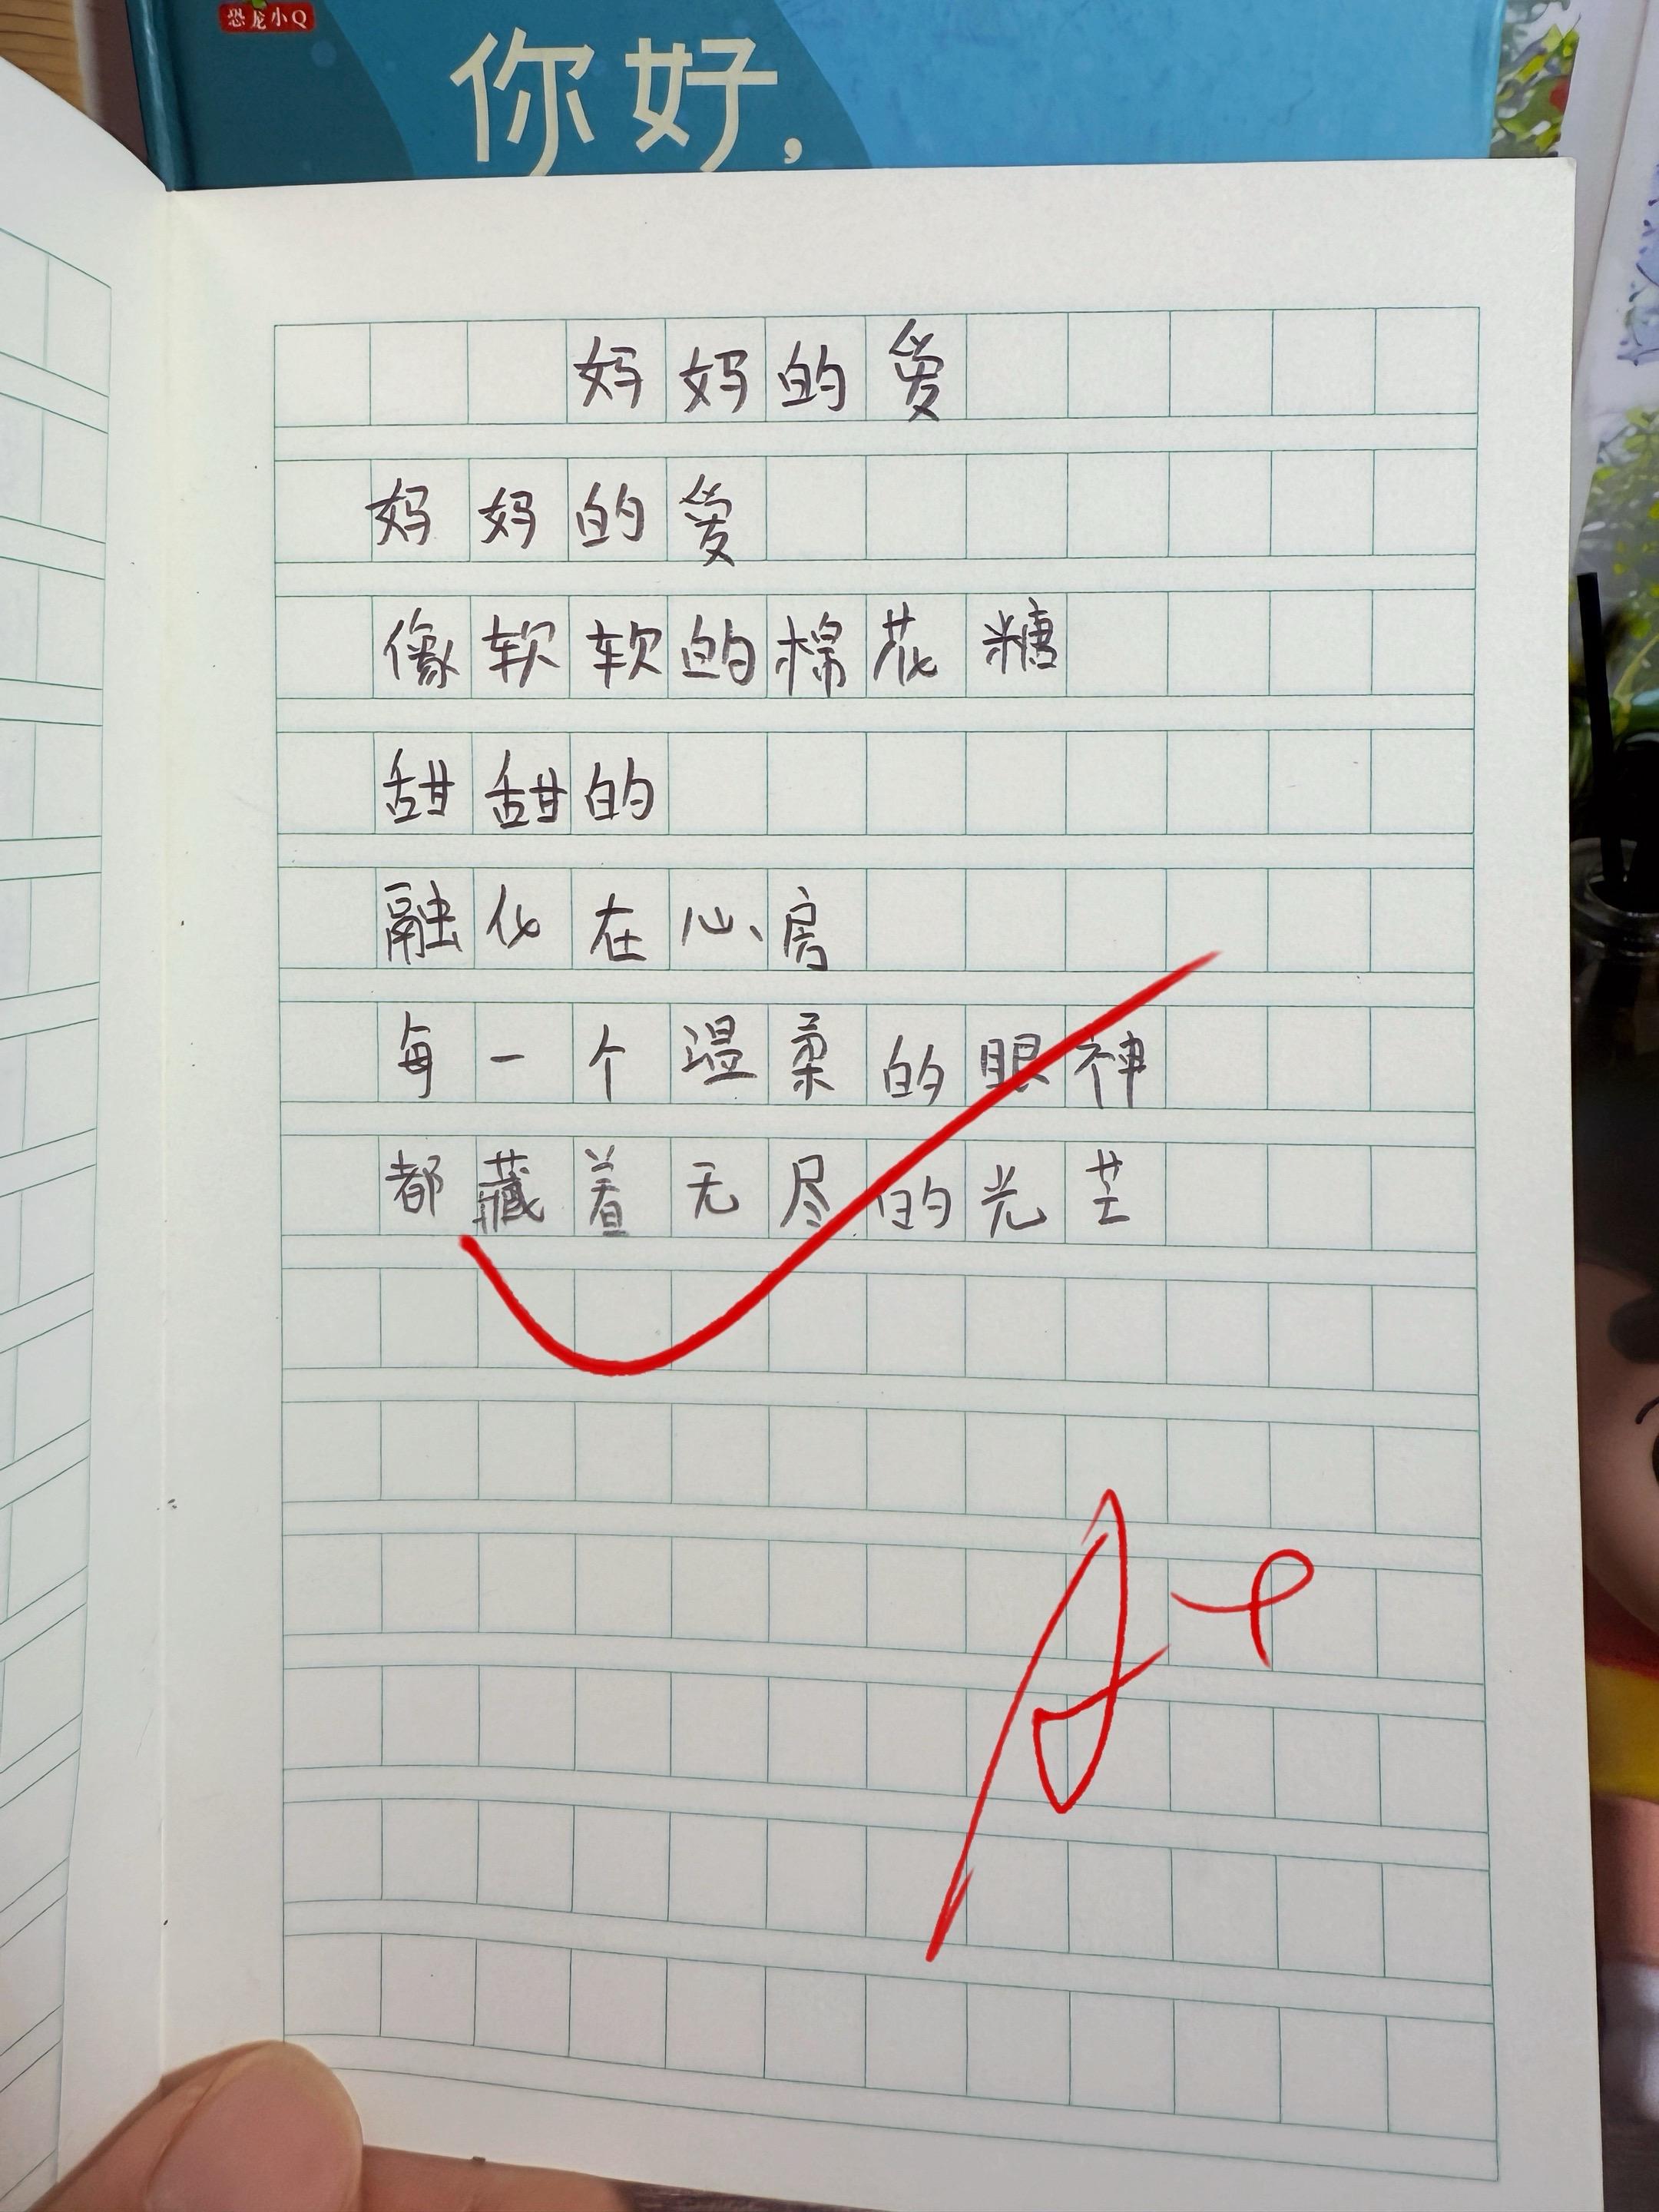 恐龙小Q
你好，
妈妈的爱
妈妈的爱
像软软的棉花糖
甜甜的
融化在心房
每一个温柔的眼神
都藏着无尽的光芒
A+